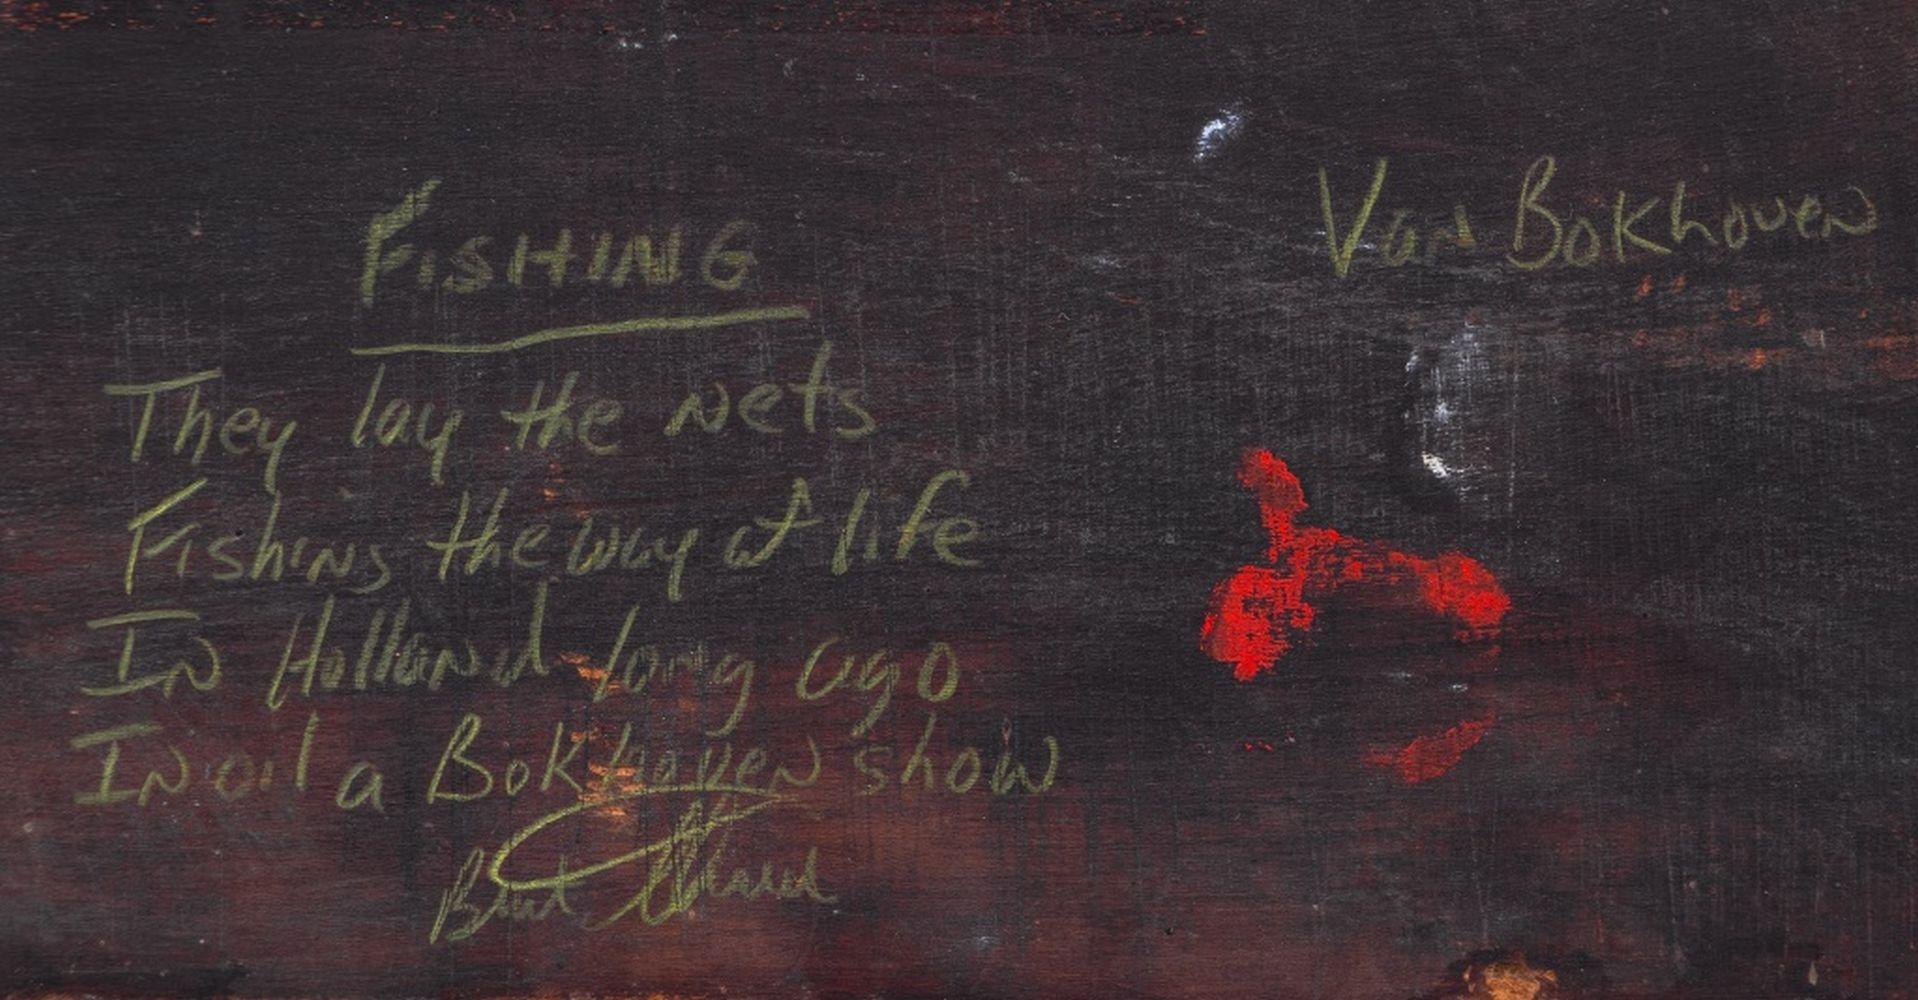 FISHING
Van Bokhoven
They lay the nets
Fishing the way of life
In Holland long ago
In oil a Bokhoven show